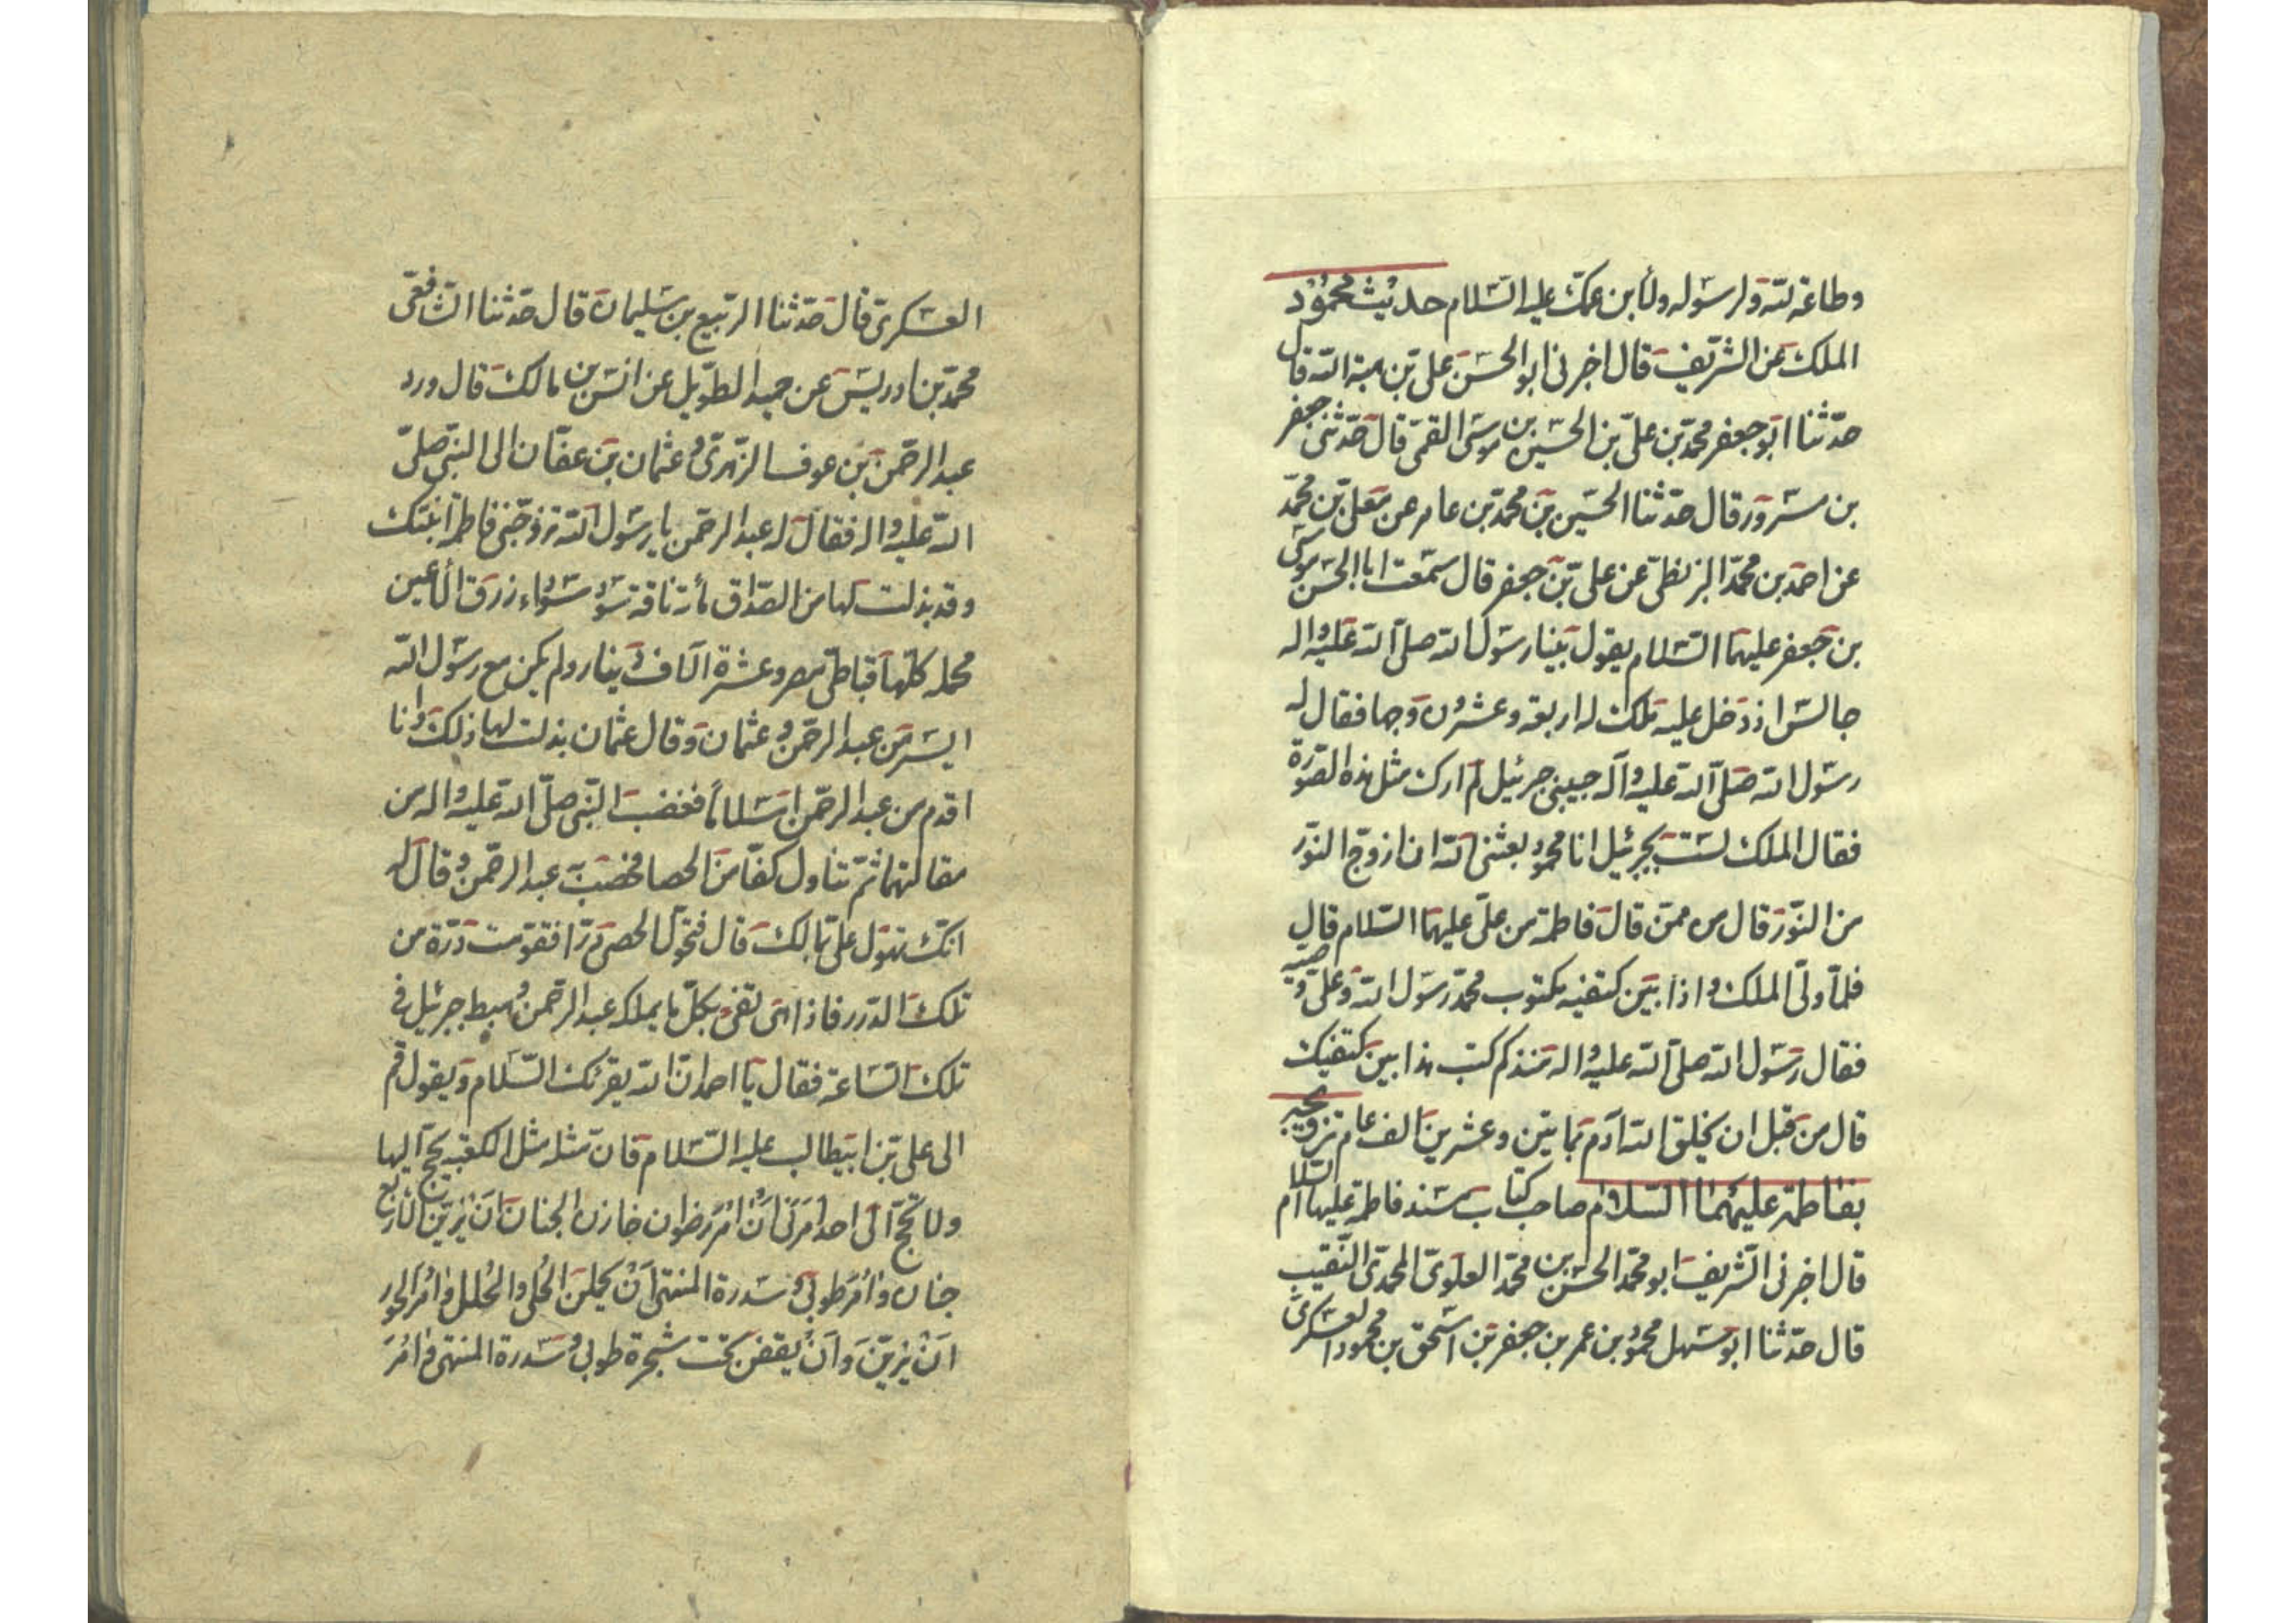 وطاعة لله ولرسوله ولابن عمك عليه السلام حديث محمود
الملك عن الشريف قال اخبرني ابو الحسن علي بن هبة الله قال
حدثنا ابو جعفر محمد بن علي بن الحسين بن موسى القمي قال حدثني جعفر
بن مسرور قال حدثنا الحسين بن محمد بن عامر عن معلى بن محمد
عن احمد بن محمد البزنطي عن علي بن جعفر قال سمعت ابا الحسن موسى
بن جعفر عليهما السلام يقول بينا رسول الله صلى الله عليه واله
جالس اذ دخل عليه ملك له اربعة وعشرون وجها فقال له
رسول الله صلى الله عليه وآله حبيبي جبرئيل لم ارك مثل هذه الصورة
فقال الملك لست بجبرئيل انا محمود بعثني الله ان ازوج النور
من النور قال من ممن قال فاطمة من علي عليهما السلام قال
فلما ولى الملك واذا بين كتفيه مكتوب محمد رسول الله وعلي وصيه
فقال رسول الله صلى الله عليه واله منذ كم كتب هذا بين كتفيك
قال من قبل ان يخلق الله آدم بمايتين وعشرين الف عام تزويجه
بفاطمة عليهما السلام صاحب كتاب مسند فاطمة عليها السلام
قال اخبرني الشريف ابو محمد الحسن بن محمد العلوي المحمدي النقيب
قال حدثنا ابو سهل محمود بن عمر بن جعفر بن اسحق بن محمود العسكري
العسكري قال حدثنا الربيع بن سليمان قال حدثنا الشافعي
محمد بن ادريس عن حميد الطويل عن انس بن مالك قال ورد
عبد الرحمن بن عوف الزهري وعثمان بن عفان الى النبي صلى
الله عليه واله فقال له عبد الرحمن يا رسول الله تزوجني فاطمة ابنتك
وقد بذلت لها من الصداق مأة ناقة سود سواء زرق الأعين
محمله كلها قباطي مصر وعشرة الاف دينار ولم يكن مع رسول الله
ايسر من عبد الرحمن وعثمان وقال عثمان بذلت لها ذلك وانا
اقدم من عبد الرحمن اسلاما فغضب النبي صلى الله عليه واله من
مقالتهما ثم تناول كفا من الحصا فحصب به عبد الرحمن وقال له
انك تهول علي بمالك قال فتحول الحصى درا فقومت درة من
تلك الدرر فاذا هي تفي بكل ما يملكه عبد الرحمن وهبط جبرئيل في
تلك الساعة فقال يا احمد ان الله يقرئك السلام ويقول قم
الى علي بن ابيطالب عليه السلام فان مثله مثل الكعبه يحج اليها
ولا تحج الى احد امرني ان امر رضوان خازن الجنان ان يزين الأربع
جنان وامر طوبى وسدرة المنتهى ان يحملن الحلي والحلل وامر الحور
ان يزين وان يقفن تحت شجرة طوبى وسدرة المنتهى وامر